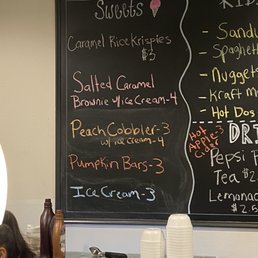 Sweets
Caramel Rice Krispies
$3
Salted Caramel
Brownie w/ice Cream-4
Peach Cobbler-3
w/ice Cream-4
Pumpkin Bars-3
Ice Cream-3
Hot
Apple-3
Cider
- Sandw
- Spaghett
- Nuggets
- Kraft M
- Hot Dos
DRI
Pepsi F
Tea $2.
Lemonad
$2.5